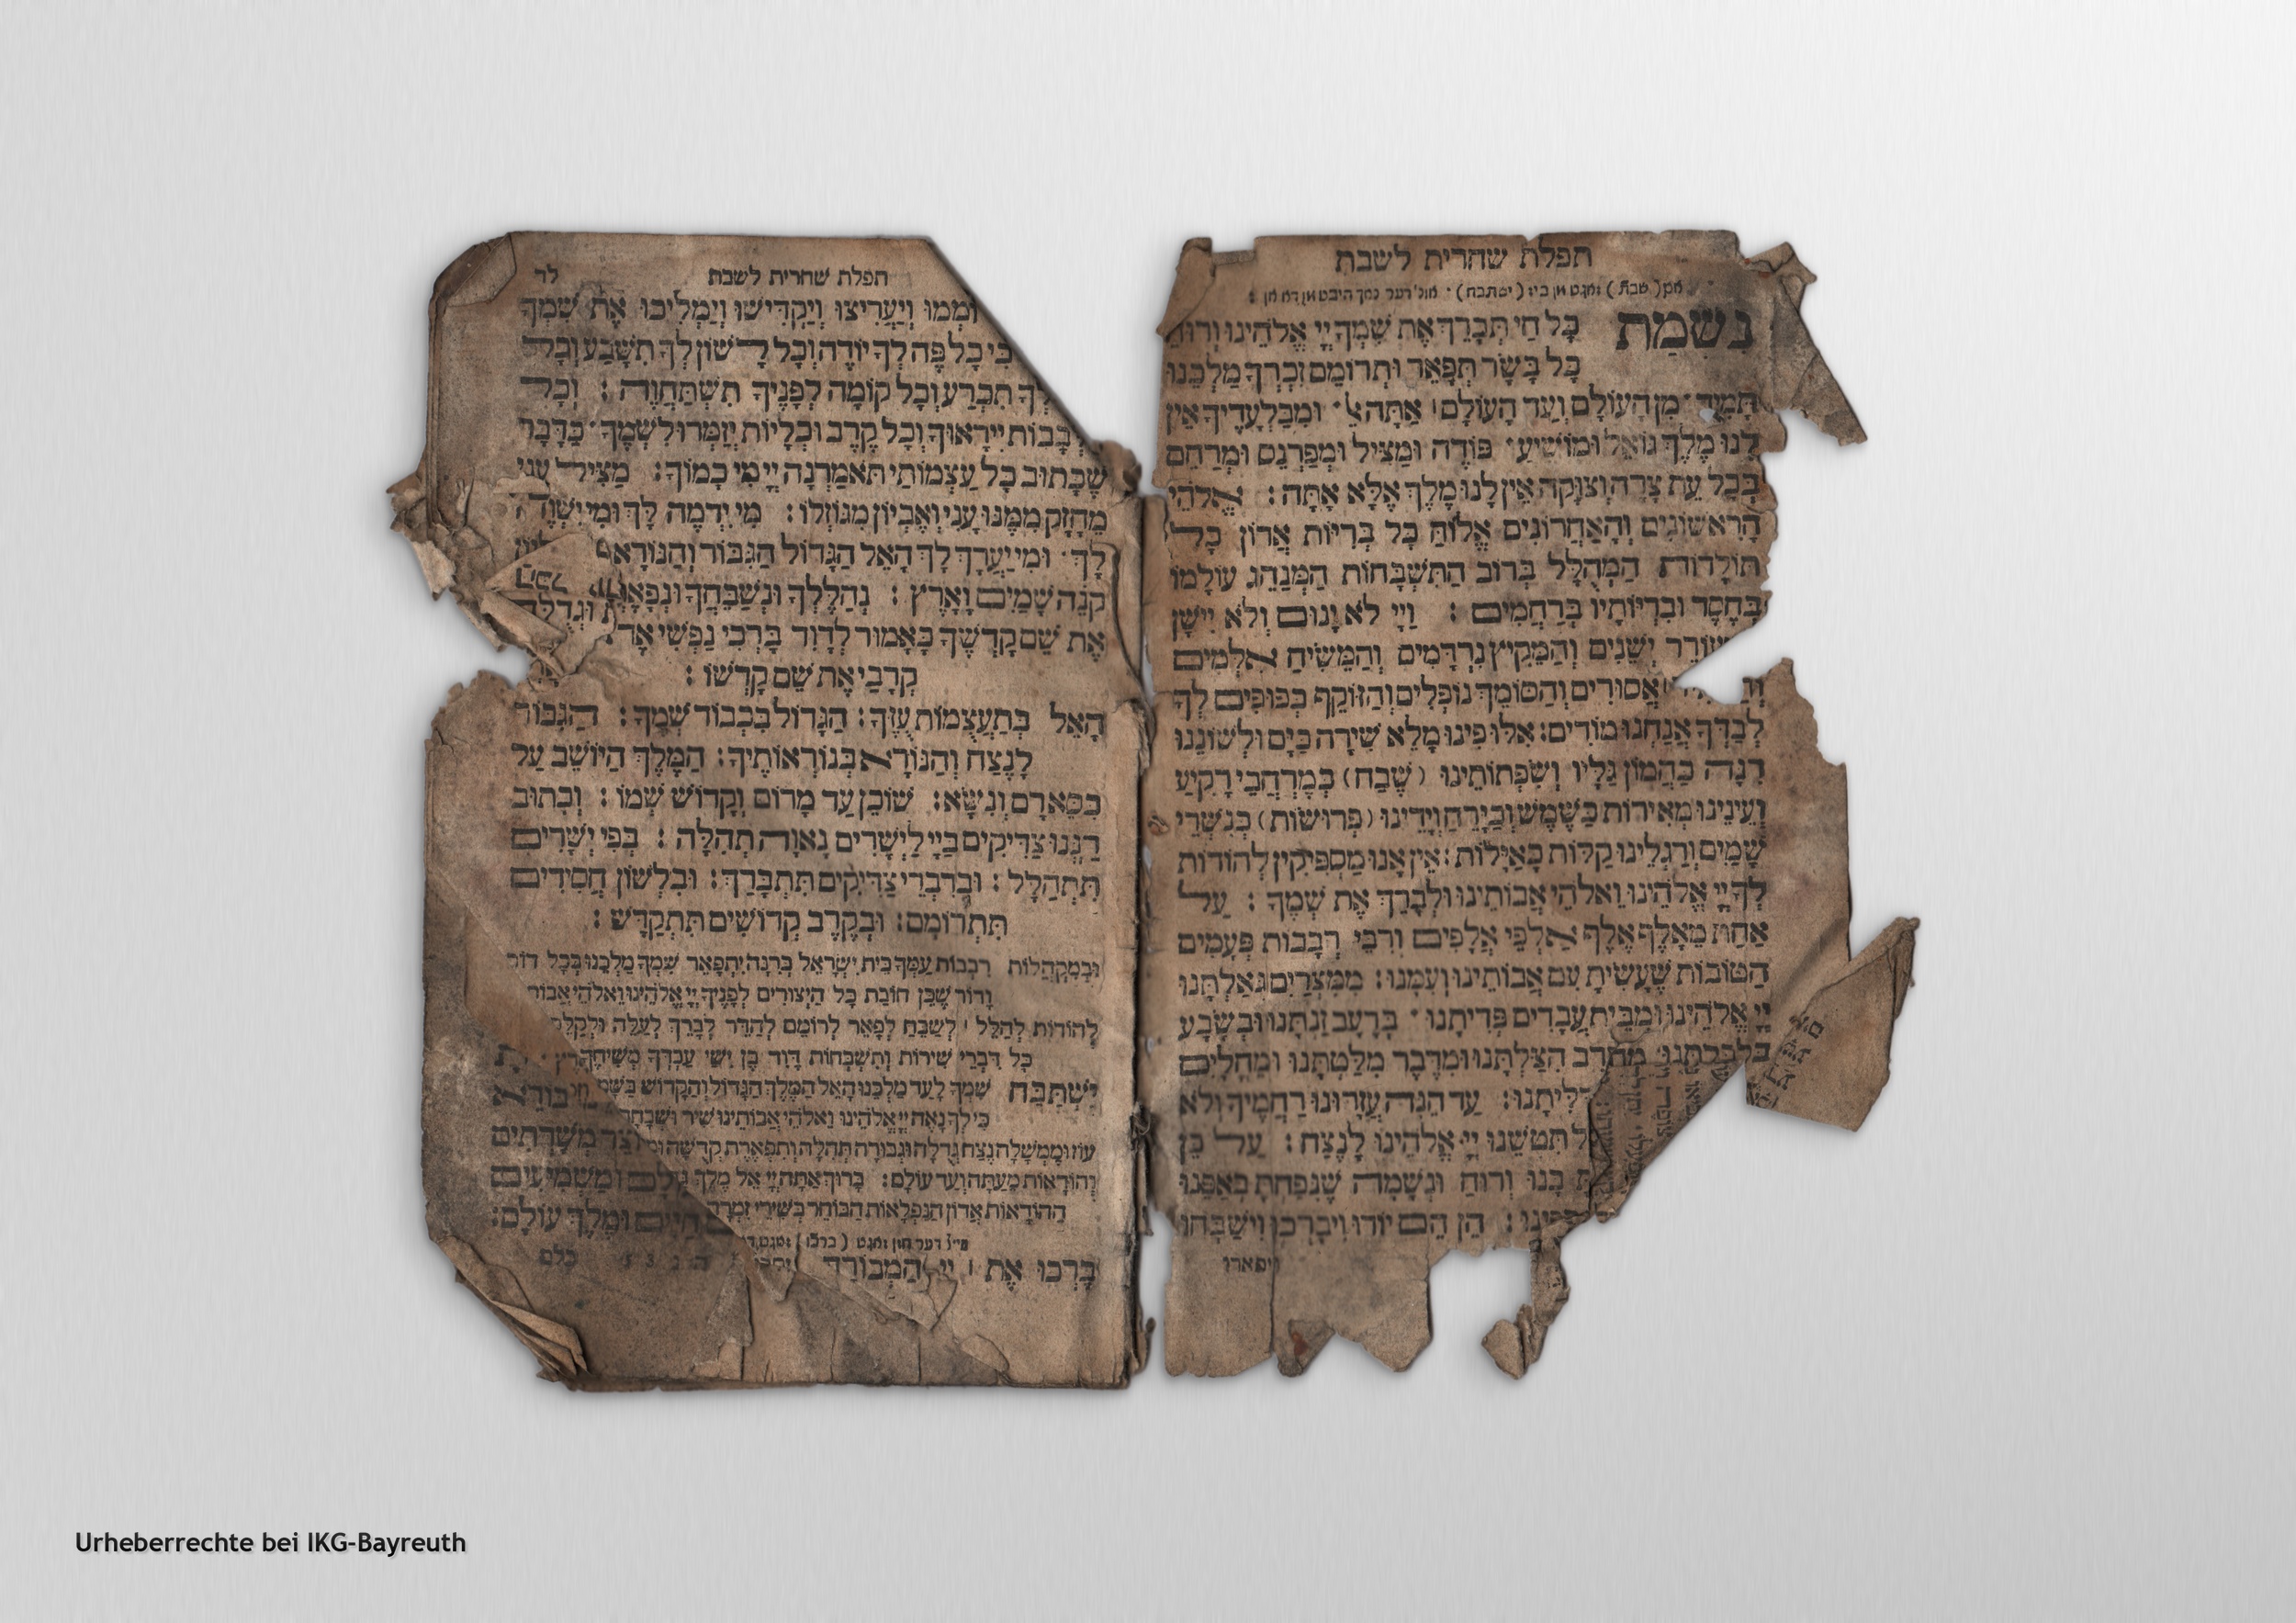 תפלת שחרית לשבת
נשמת כָּל חַי תְּבָרֵךְ אֶת שִׁמְךָ יְיָ אֱלֹהֵינוּ וְרוּחַ
כָּל בָּשָׂר תְּפָאֵר וּתְרוֹמֵם זִכְרְךָ מַלְכֵּנוּ
תָּמִיד מִן הָעוֹלָם וְעַד הָעוֹלָם אַתָּה וּמִבַּלְעָדֶיךָ אֵין
לָנוּ מֶלֶךְ גּוֹאֵל וּמוֹשִׁיעַ פּוֹדֶה וּמַצִּיל וּמְפַרְנֵס וּמְרַחֵם
בְּכָל עֵת צָרָה וְצוּקָה אֵין לָנוּ מֶלֶךְ אֶלָּא אָתָּה : אֱלֹהֵי
הָרִאשׁוֹנִים וְהָאַחֲרוֹנִים אֱלוֹהַּ כָּל בְּרִיּוֹת אֲדוֹן כָּל
תּוֹלָדוֹת הַמְהֻלָּל בְּרוֹב הַתִּשְׁבָּחוֹת הַמְנַהֵג עוֹלָמוֹ
בְּחֶסֶד וּבְרִיּוֹתָיו בְּרַחֲמִים : וַיְיָ לֹא יָנוּם וְלֹא יִישָׁן
יְשֵׁנִים וְהַמֵּקִיץ נִרְדָּמִים וְהַמֵּשִׂיחַ אִלְּמִים
אֲסוּרִים וְהַסּוֹמֵךְ נוֹפְלִים וְהַזּוֹקֵף כְּפוּפִים לְךָ
לְבַדְּךָ אֲנַחְנוּ מוֹדִים : אִלּוּ פִינוּ מָלֵא שִׁירָה כַּיָּם וּלְשׁוֹנֵנוּ
רִנָּה כַּהֲמוֹן גַּלָּיו וְשִׂפְתוֹתֵינוּ (שֶׁבַח) כְּמֶרְחֲבֵי רָקִיעַ
וְעֵינֵינוּ מְאִירוֹת כַּשֶּׁמֶשׁ וְכַיָּרֵחַ וְיָדֵינוּ (פְרוּשׂוֹת) כְּנִשְׁרֵי
שָׁמַיִם וְרַגְלֵינוּ קַלּוֹת כָּאַיָּלוֹת : אֵין אָנוּ מַסְפִּיקִין לְהוֹדוֹת
לְךָ יְיָ אֱלֹהֵינוּ וֵאלֹהֵי אֲבוֹתֵינוּ וּלְבָרֵךְ אֶת שְׁמֶךָ : עַל
אַחַת מֵאָלֶף אֶלֶף אַלְפֵי אֲלָפִים וְרִבֵּי רְבָבוֹת פְּעָמִים
הַטּוֹבוֹת שֶׁעָשִׂיתָ עִם אֲבוֹתֵינוּ וְעִמָּנוּ : מִמִּצְרַיִם גְּאַלְתָּנוּ
יְיָ אֱלֹהֵינוּ וּמִבֵּית עֲבָדִים פְּדִיתָנוּ בְּרָעָב זַנְתָּנוּ וּבְשָׂבָע
כִּלְכַּלְתָּנוּ מֵחֶרֶב הִצַּלְתָּנוּ וּמִדֶּבֶר מִלַּטְתָּנוּ וּמֵחֳלָיִם
דִּלִּיתָנוּ : עַד הֵנָּה עֲזָרוּנוּ רַחֲמֶיךָ וְלֹא
תִּטְּשֵׁנוּ יְיָ אֱלֹהֵינוּ לָנֶצַח : עַל כֵּן
בָּנוּ וְרוּחַ וּנְשָׁמָה שֶׁנָּפַחְתָּ בְּאַפֵּנוּ
: הֵן הֵם יוֹדוּ וִיבָרְכוּ וִישַׁבְּחוּ
ויפארו
תפלת שחרית לשבת לד
וְיַעֲרִיצוּ וְיַקְדִּישׁוּ וְיַמְלִיכוּ אֶת שִׁמְךָ
כִּי כָל פֶּה לְךָ יוֹדֶה וְכָל לָשׁוֹן לְךָ תִשָּׁבַע וְכָל
לְךָ תִכְרַע וְכָל קוֹמָה לְפָנֶיךָ תִשְׁתַּחֲוֶה : וְכָל
לְבָבוֹת יִירָאוּךָ וְכָל קֶרֶב וּכְלָיוֹת יְזַמְּרוּ לִשְׁמֶךָ כַּדָּבָר
שֶׁכָּתוּב כָּל עַצְמוֹתַי תֹּאמַרְנָה יְיָ מִי כָמוֹךָ : מַצִּיל עָנִי
מֵחָזָק מִמֶּנּוּ עָנִי וְאֶבְיוֹן מִגּוֹזְלוֹ : מִי יִדְמֶה לָּךְ וּמִי יִשְׁוֶה
לָּךְ וּמִי יַעֲרָךְ לָךְ הָאֵל הַגָּדוֹל הַגִּבּוֹר וְהַנּוֹרָא
קֹנֵה שָׁמַיִם וָאָרֶץ : נְהַלֶּלְךָ וּנְשַׁבֵּחֲךָ וּנְפָאֶרְךָ
אֶת שֵׁם קָדְשֶׁךָ כָּאָמוּר לְדָוִד בָּרְכִי נַפְשִׁי אֶת
קְרָבַי אֶת שֵׁם קָדְשׁוֹ :
הָאֵל בְּתַעֲצֻמוֹת עֻזֶּךָ : הַגָּדוֹל בִּכְבוֹד שְׁמֶךָ : הַגִּבּוֹר
לָנֶצַח וְהַנּוֹרָא בְּנוֹרְאוֹתֶיךָ : הַמֶּלֶךְ הַיּוֹשֵׁב עַל
כִּסֵּא רָם וְנִשָּׂא : שׁוֹכֵן עַד מָרוֹם וְקָדוֹשׁ שְׁמוֹ : וְכָתוּב
רַנְּנוּ צַדִּיקִים בַּיְיָ לַיְשָׁרִים נָאוָה תְהִלָּה : בְּפִי יְשָׁרִים
תִּתְהַלָּל : וּבְדִבְרֵי צַדִּיקִים תִּתְבָּרַךְ : וּבִלְשׁוֹן חֲסִידִים
תִּתְרוֹמָם : וּבְקֶרֶב קְדוֹשִׁים תִּתְקַדָּשׁ :
וּבְמַקְהֲלוֹת רִבְבוֹת עַמְּךָ בֵּית יִשְׂרָאֵל בְּרִנָּה יִתְפָּאֵר שִׁמְךָ מַלְכֵּנוּ בְּכָל דּוֹר
וָדוֹר שֶׁכֵּן חוֹבַת כָּל הַיְצוּרִים לְפָנֶיךָ יְיָ אֱלֹהֵינוּ וֵאלֹהֵי
לְהוֹדוֹת לְהַלֵּל לְשַׁבֵּחַ לְפָאֵר לְרוֹמֵם לְהַדֵּר לְבָרֵךְ לְעַלֵּה וּלְקַלֵּס
כָּל דִּבְרֵי שִׁירוֹת וְתִשְׁבְּחוֹת דָּוִד בֶּן יִשַׁי עַבְדְּךָ מְשִׁיחֶךָ
יִשְׁתַּבַּח שִׁמְךָ לָעַד מַלְכֵּנוּ הָאֵל הַמֶּלֶךְ הַגָּדוֹל וְהַקָּדוֹשׁ
כִּי לְךָ נָאֶה יְיָ אֱלֹהֵינוּ וֵאלֹהֵי אֲבוֹתֵינוּ שִׁיר וּשְׁבָחָה
עוֹז וּמֶמְשָׁלָה נֶצַח גְּדֻלָּה וּגְבוּרָה תְּהִלָּה וְתִפְאֶרֶת קְדֻשָּׁה
וְהוֹדָאוֹת מֵעַתָּה וְעַד עוֹלָם : בָּרוּךְ אַתָּה יְיָ אֵל מֶלֶךְ
הַהוֹדָאוֹת אֲדוֹן הַנִּפְלָאוֹת הַבּוֹחֵר בְּשִׁירֵי זִמְרָה
בָּרְכוּ אֶת יְיָ הַמְבוֹרָךְ
Urheberrechte bei IKG-Bayreuth